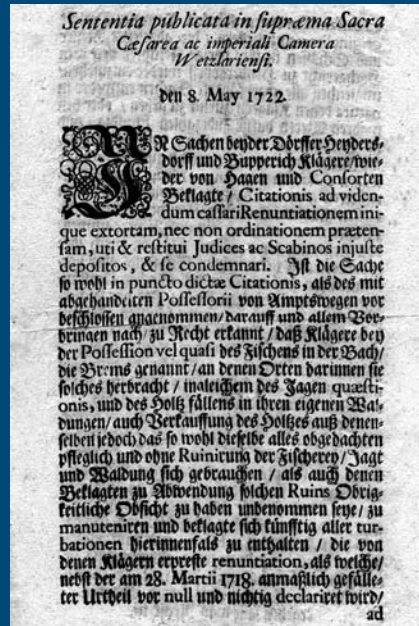 Sententia publicata in supræma Sacra
Cæsarea ac imperiali Camera
Wetzlariensi.
den 8. May 1722.
IN Sachen beyder Dörffer Heyders-
dorff und Bupperich Klägere / wie-
der von Hagen und Consorten
Beklagte / Citationis ad viden-
dum cassari Renuntiationem ini-
que extortam, nec non ordinationem præten-
sam, uti & restitui Judices ac Scabinos injuste
depositos, & se condemnari. Ist die Sache
so wohl in puncto dictæ Citationis, als des mit
abgehandelten Possessorii von Amptswegen vor
beschlossen angenommen / darauff und allem Vor-
bringen nach / zu Recht erkannt / daß Klägere bey
der Possession vel quasi des Fischens in der Bach /
die Brems genannt / an denen Orten darinnen sie
solches herbracht / ingleichem des Jagen quæsti-
onis, und des Holtz fällens in ihren eigenen Wal-
dungen / auch Verkauffung des Holtzes auß denen-
selben jedoch das so wohl dieselbe alles obgedachten
pfleglich und ohne Ruinirung der Fischerey / Jagt
und Waldung sich gebrauchen / als auch denen
Beklagten zu Abwendung solchen Ruins Obrig-
keitliche Obsicht zu haben unbenommen seye / zu
manuteniren und beklagte sich künfftig aller tur-
bationen hierinnenfals zu enthalten / die von
denen Klägern erpreste renuntiation, als welche /
nebst der am 28. Martii 1718. anmaßlich gefälle-
ter Urtheil vor null und nichtig declariret wird /
ad